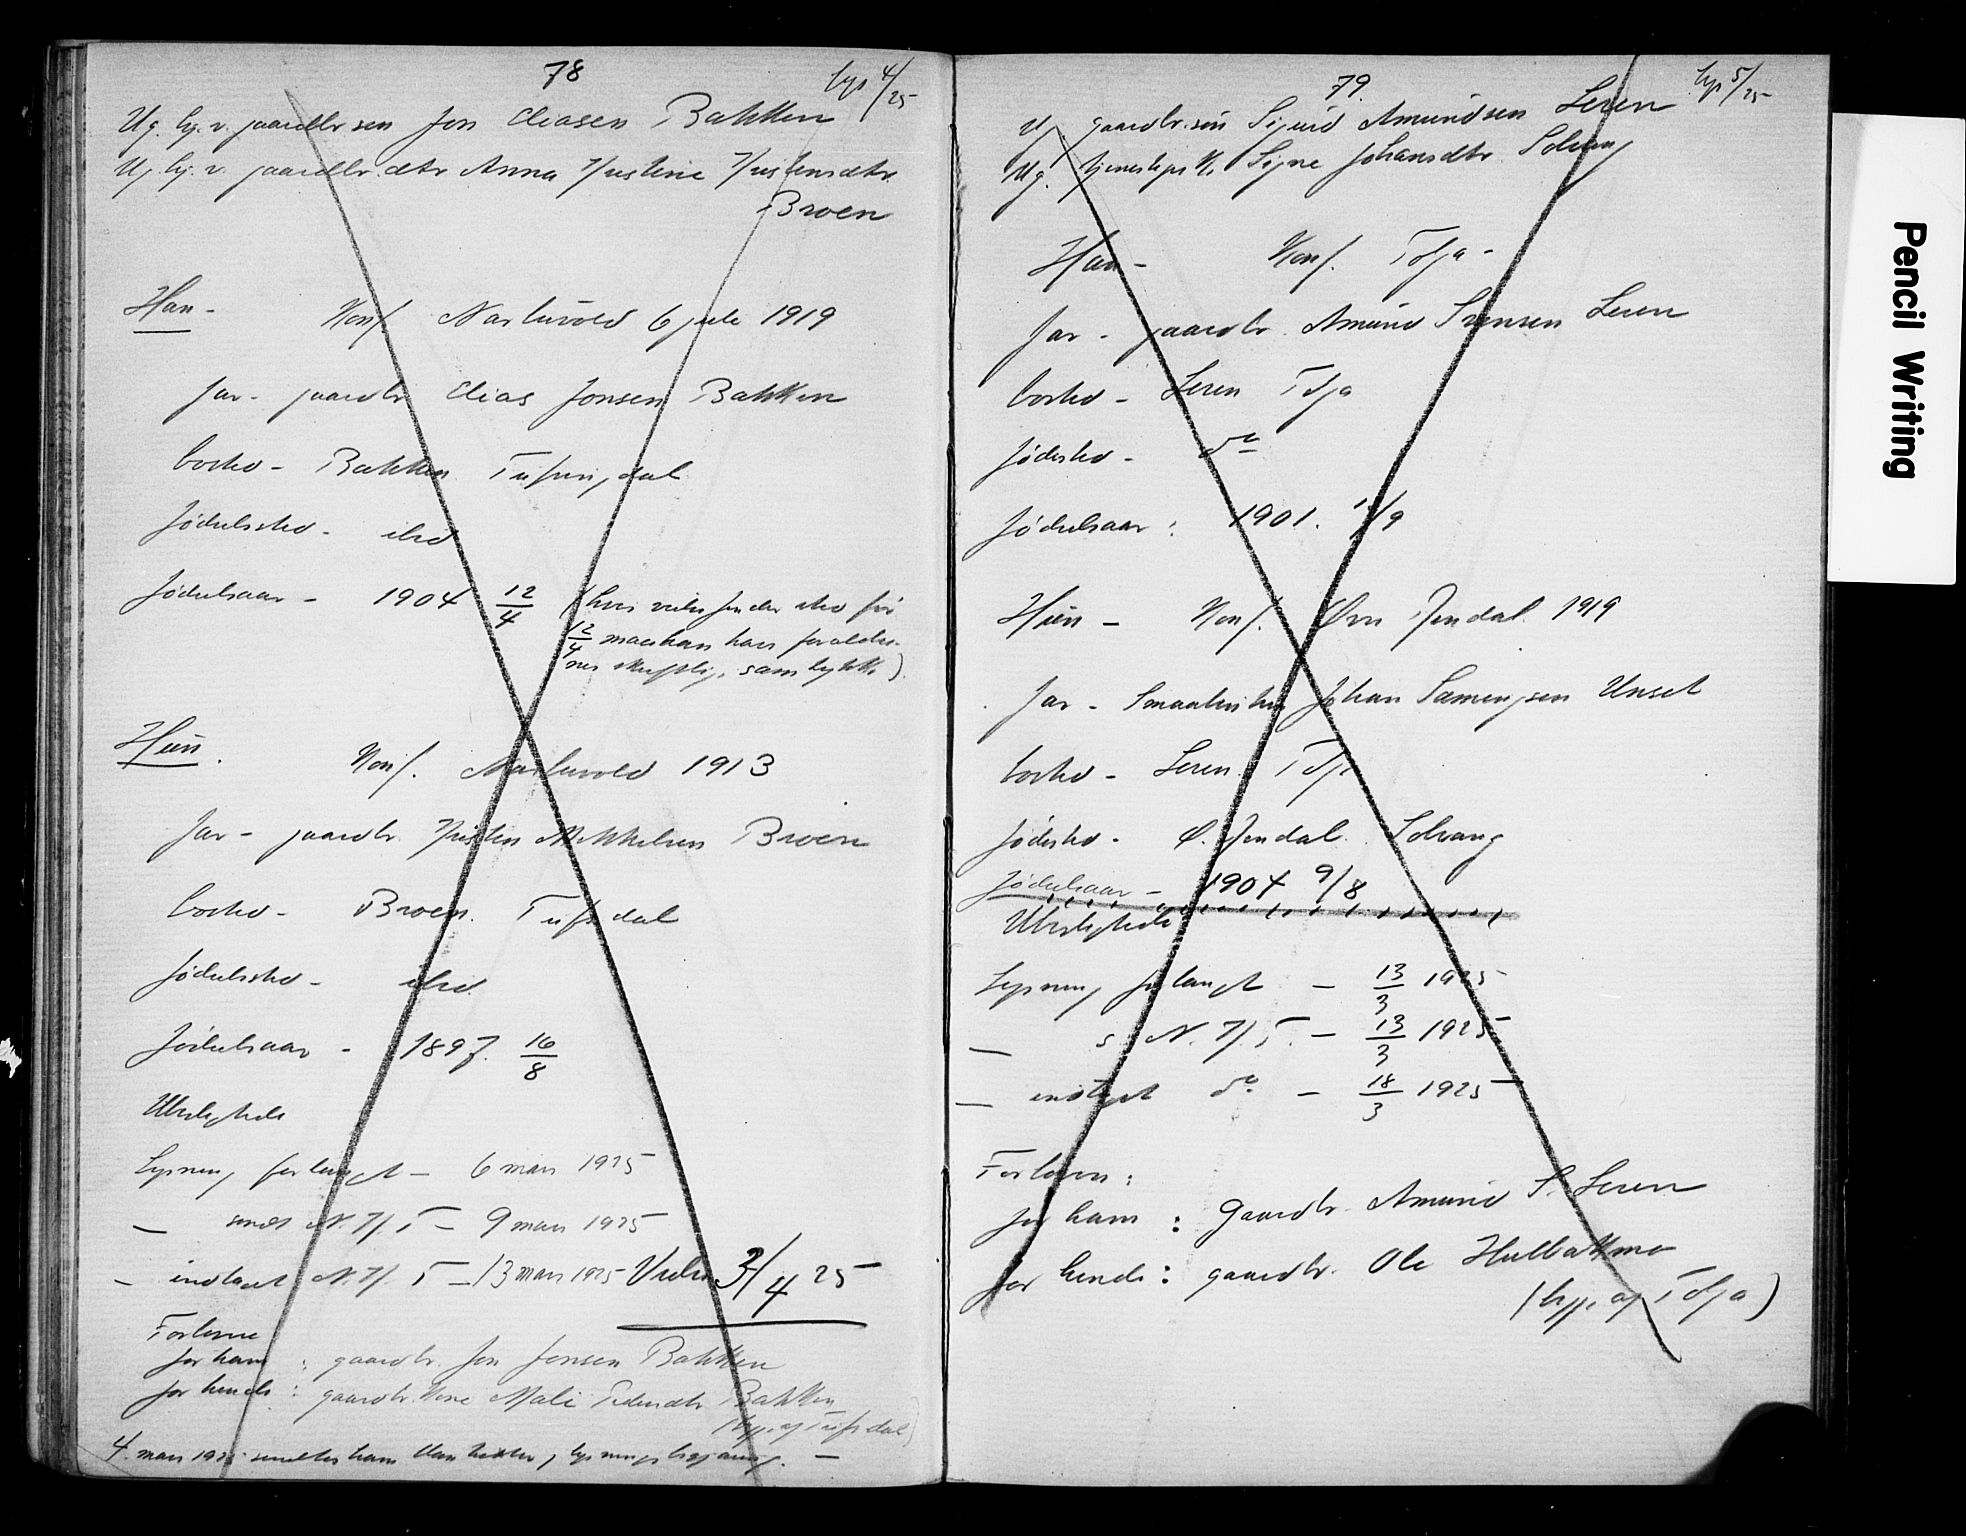 78
lys 4/25
Ug. hj. v. gaardbr sön Jon Eliasen Bakken
Ug hj. v. gaardbr. dtr Anna Kristine Kristensdtr.
Broen
Han -
Konf. Narbuvold 6 juli 1919
Far - gaardbr Elias Jonsen Bakken
bosted - Bakken Tufsingdal
Födselssted - ibid
Födselsaar - 1904 12/4 (hvis vielse finder sted för
12/4 maa han ha foreldre-
nes skriftlig. samtykke)
Hun.
Konf. Narbuvold 1913
Far - gaardbr. Kristen Mikkelsen Broen
bosted - Broen. Tufsdal
Födselssted - ibid.
Födselsaar - 1897. 16/8
Ubeslegtede
Lysning forlangt - 6 mars 1925
— sendt N. K. T - 9 mars 1925
— indtat N. K. T - 13 mars 1925 Viede 3/4 25
Forlovere
for ham : gaardbr. Jon Jonsen Bakken
for hende : gaardbr. kone Mali Pedersdtr Bakken
(begge af Tufsdal)
4. mars 1925 sendtes ham lysnings -
79.
lys 5/25
Ug. gaardbr. sön Sigurd Amundsen Leren
Ug. tjenestepike Signe Johansdtr. Solvang
Han -
Konf. Tolga -
Far - gaardbr. Amund Leren
bosted - Leren Tolga
födested - do
födselsaar : 1901. /9
Hun - Konf. Øvre Rendal 1919
Far - Smaabruker Johan Unset
bosted - Leren Tolga
födested - Ø. Rendal. Solvang
födselsaar - 1904 9/8
Ubeslegtede
Lysning forlangt - 13/3 1925
— s. N. K. T. - 13/3 1925
— indtat do - 18/3 1925
Forlovere :
for ham : gaardbr. Amund S. Leren
for hende : gaardbr. Ole Hulbakmo
(begge af Tolga)
Pencil Writing